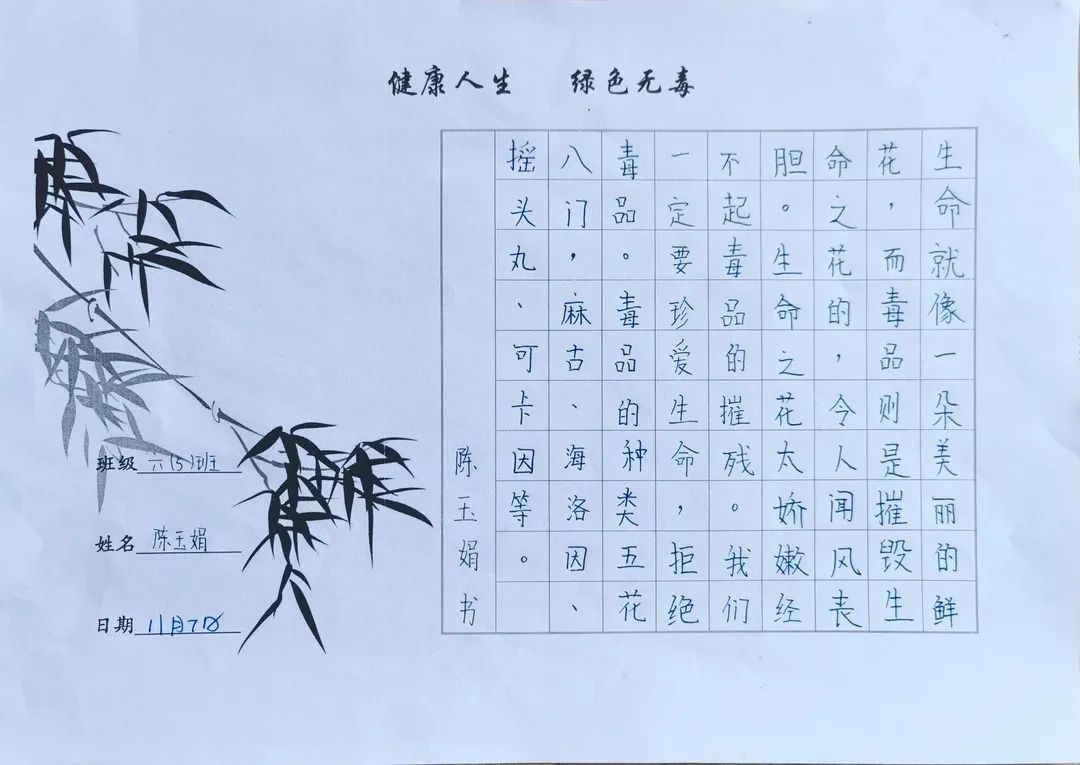 健康人生 绿色无毒
生命就像一朵美丽的鲜
花，而毒品则是摧毁生
命之花的，令人闻风丧
胆。生命之花太娇嫩经
不起毒品的摧残。我们
一定要珍爱生命，拒绝
毒品。毒品的种类五花
八门，麻古、海洛因、
摇头丸、可卡因等。
陈玉娟书
班级 六(5)班
姓名 陈玉娟
日期 11月7日